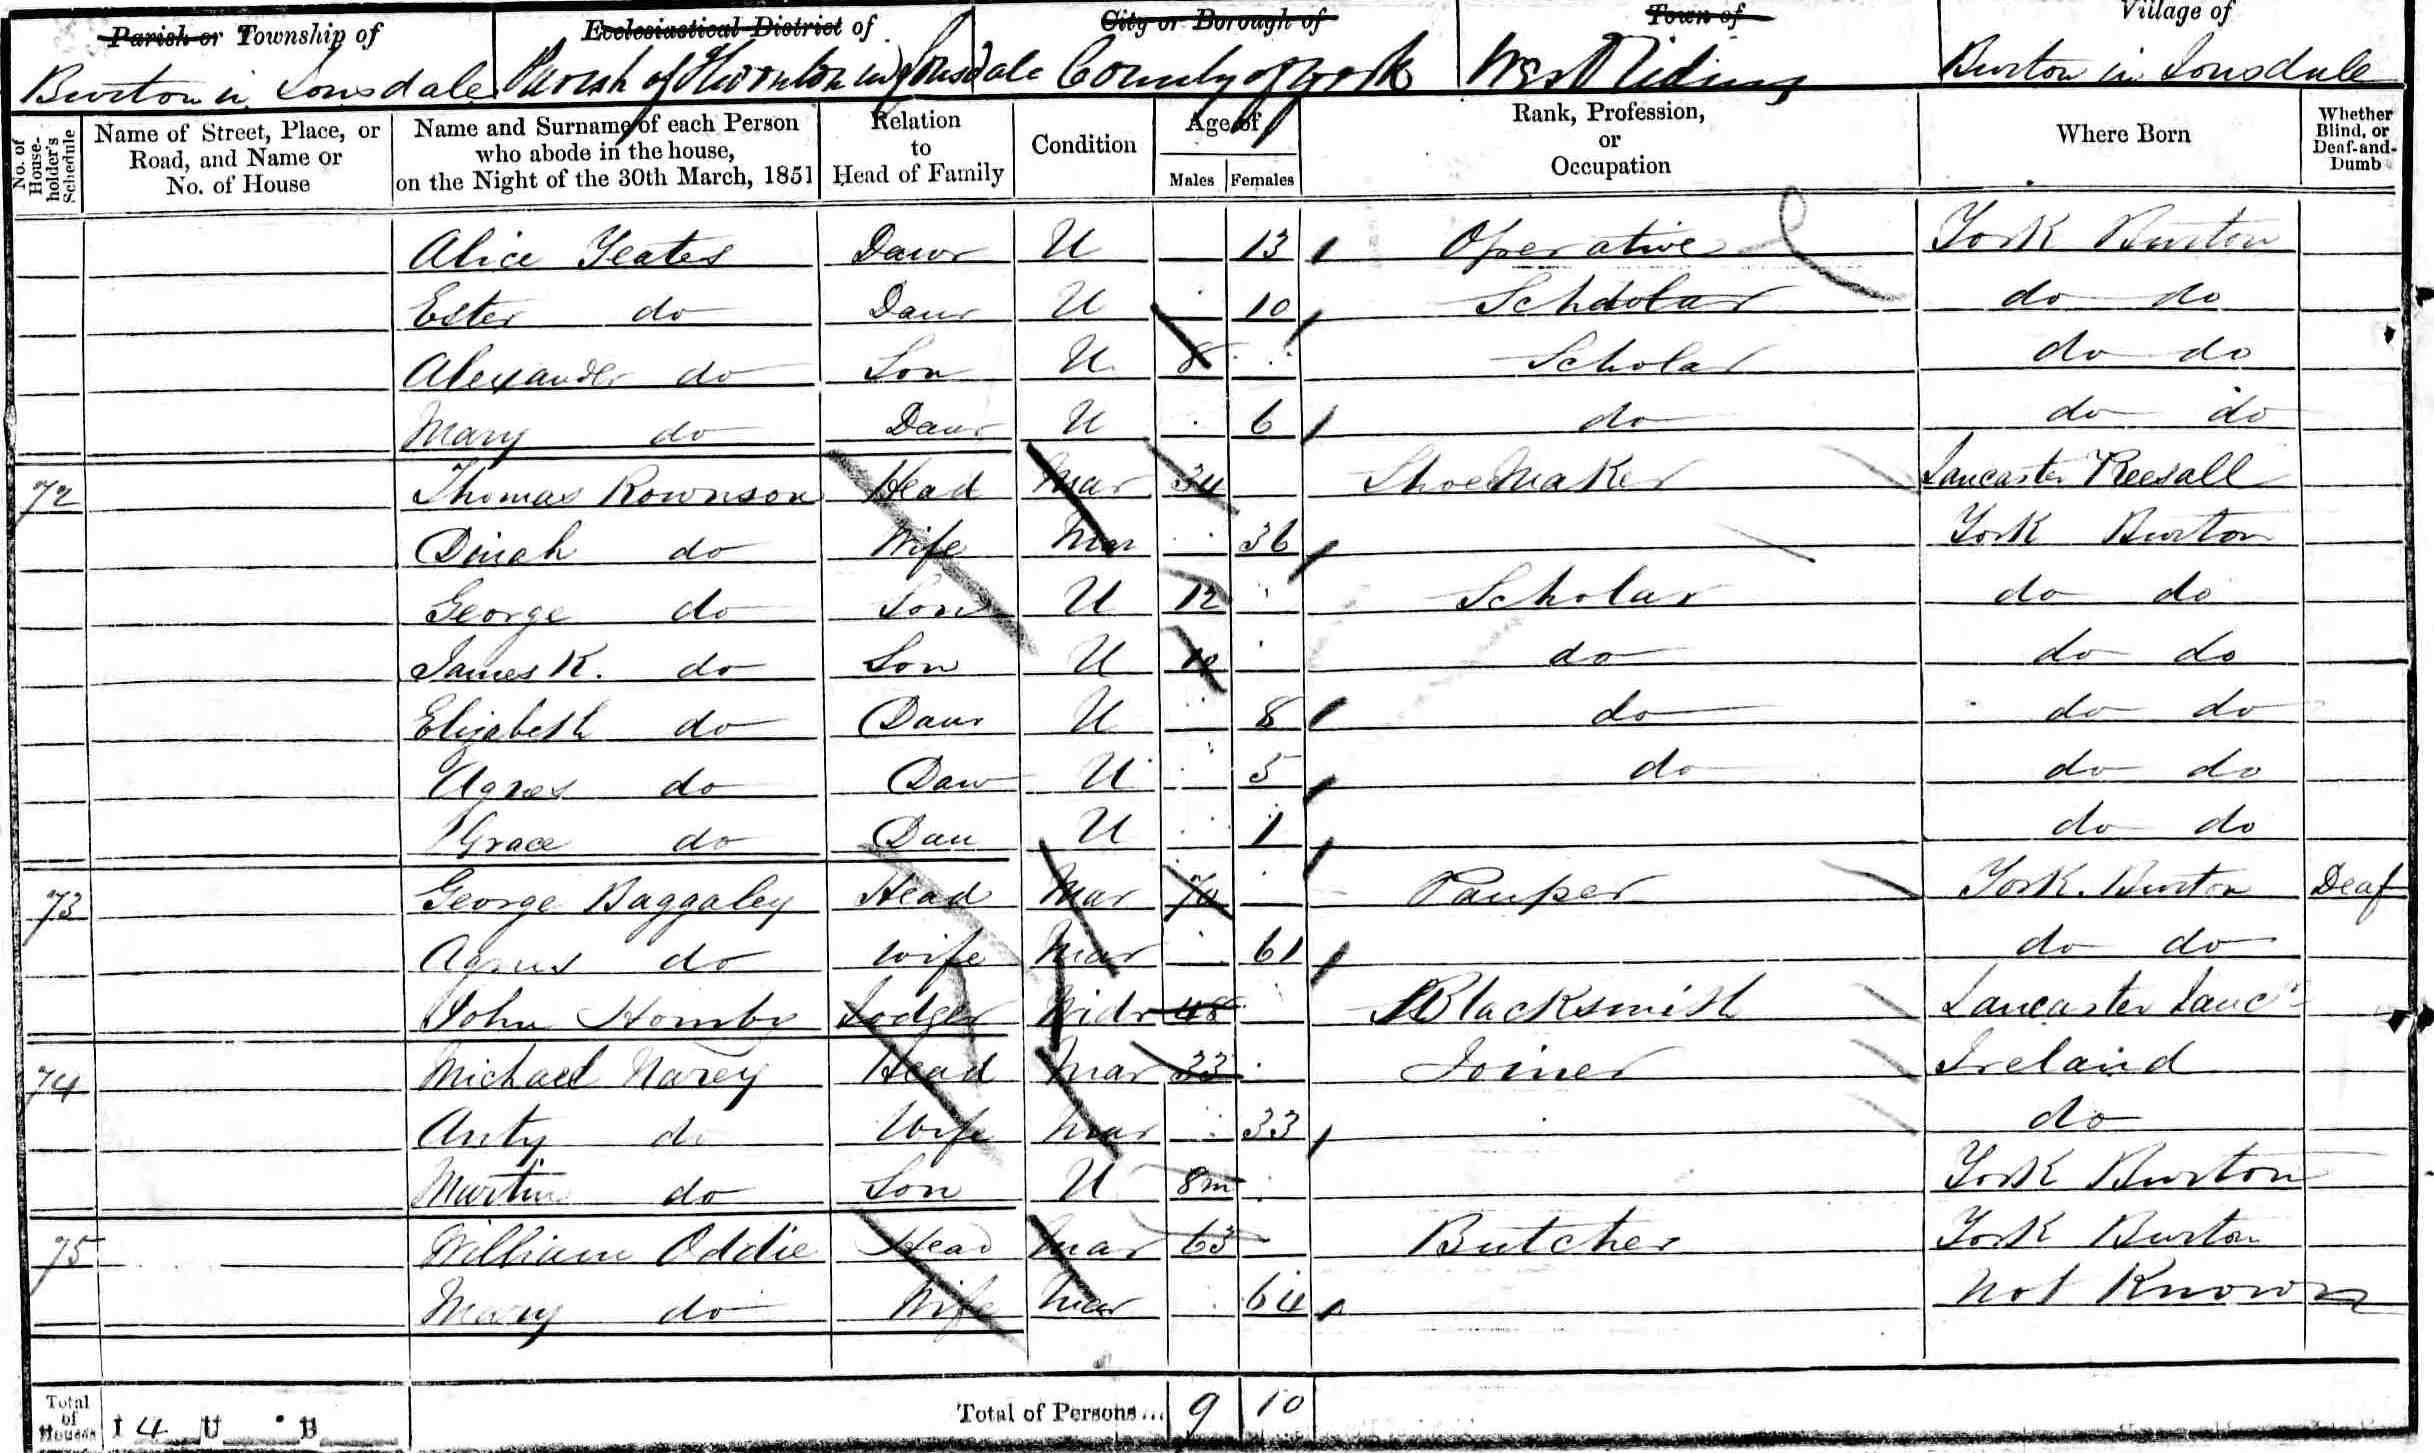 Parish or Township of Ecclesiastical District of City or Borough of Town of Village of
Burton in Lonsdale Parish of Thornton in Lonsdale County of York West Riding Burton in Lonsdale
No. of House-holder's Schedule Name of Street, Place, or Road, and Name or No. of House Name and Surname of each Person who abode in the house, on the Night of the 30th March, 1851 Relation to Head of Family Condition Age of Males Females Rank, Profession, or Occupation Where Born Whether Blind, or Deaf-and-Dumb
Alice Yeates Dawr U 13 Operative York Burton
Ester do Daur U 10 Scholar do do
Alexander do Son U 8 Scholar do do
Mary do Daur U 6 do do do
72 Thomas Rownson Head Mar 34 Shoe Maker Lancaster Reesall
Dinah do Wife Mar 36 York Burton
George do Son U 12 Scholar do do
James K. do Son U 10 do do do
Elizabeth do Daur U 8 do do do
Agnes do Daw U 5 do do do
Grace do Dau U 1 do do
73 George Baggaley Head Mar 70 Pauper York Burton Deaf
Agnes do Wife Mar 61 do do
John Hornby Lodger Widr 48 Blacksmith Lancaster Lanc
74 Michael Narey Head Mar 33 Joiner Ireland
Anty do Wife Mar 33 do
Martin do Son U 8m York Burton
75 William Oddie Head Mar 63 Butcher York Burton
Mary do Wife Mar 64 Not Known
Total of Houses I 4 U B Total of Persons... 9 10